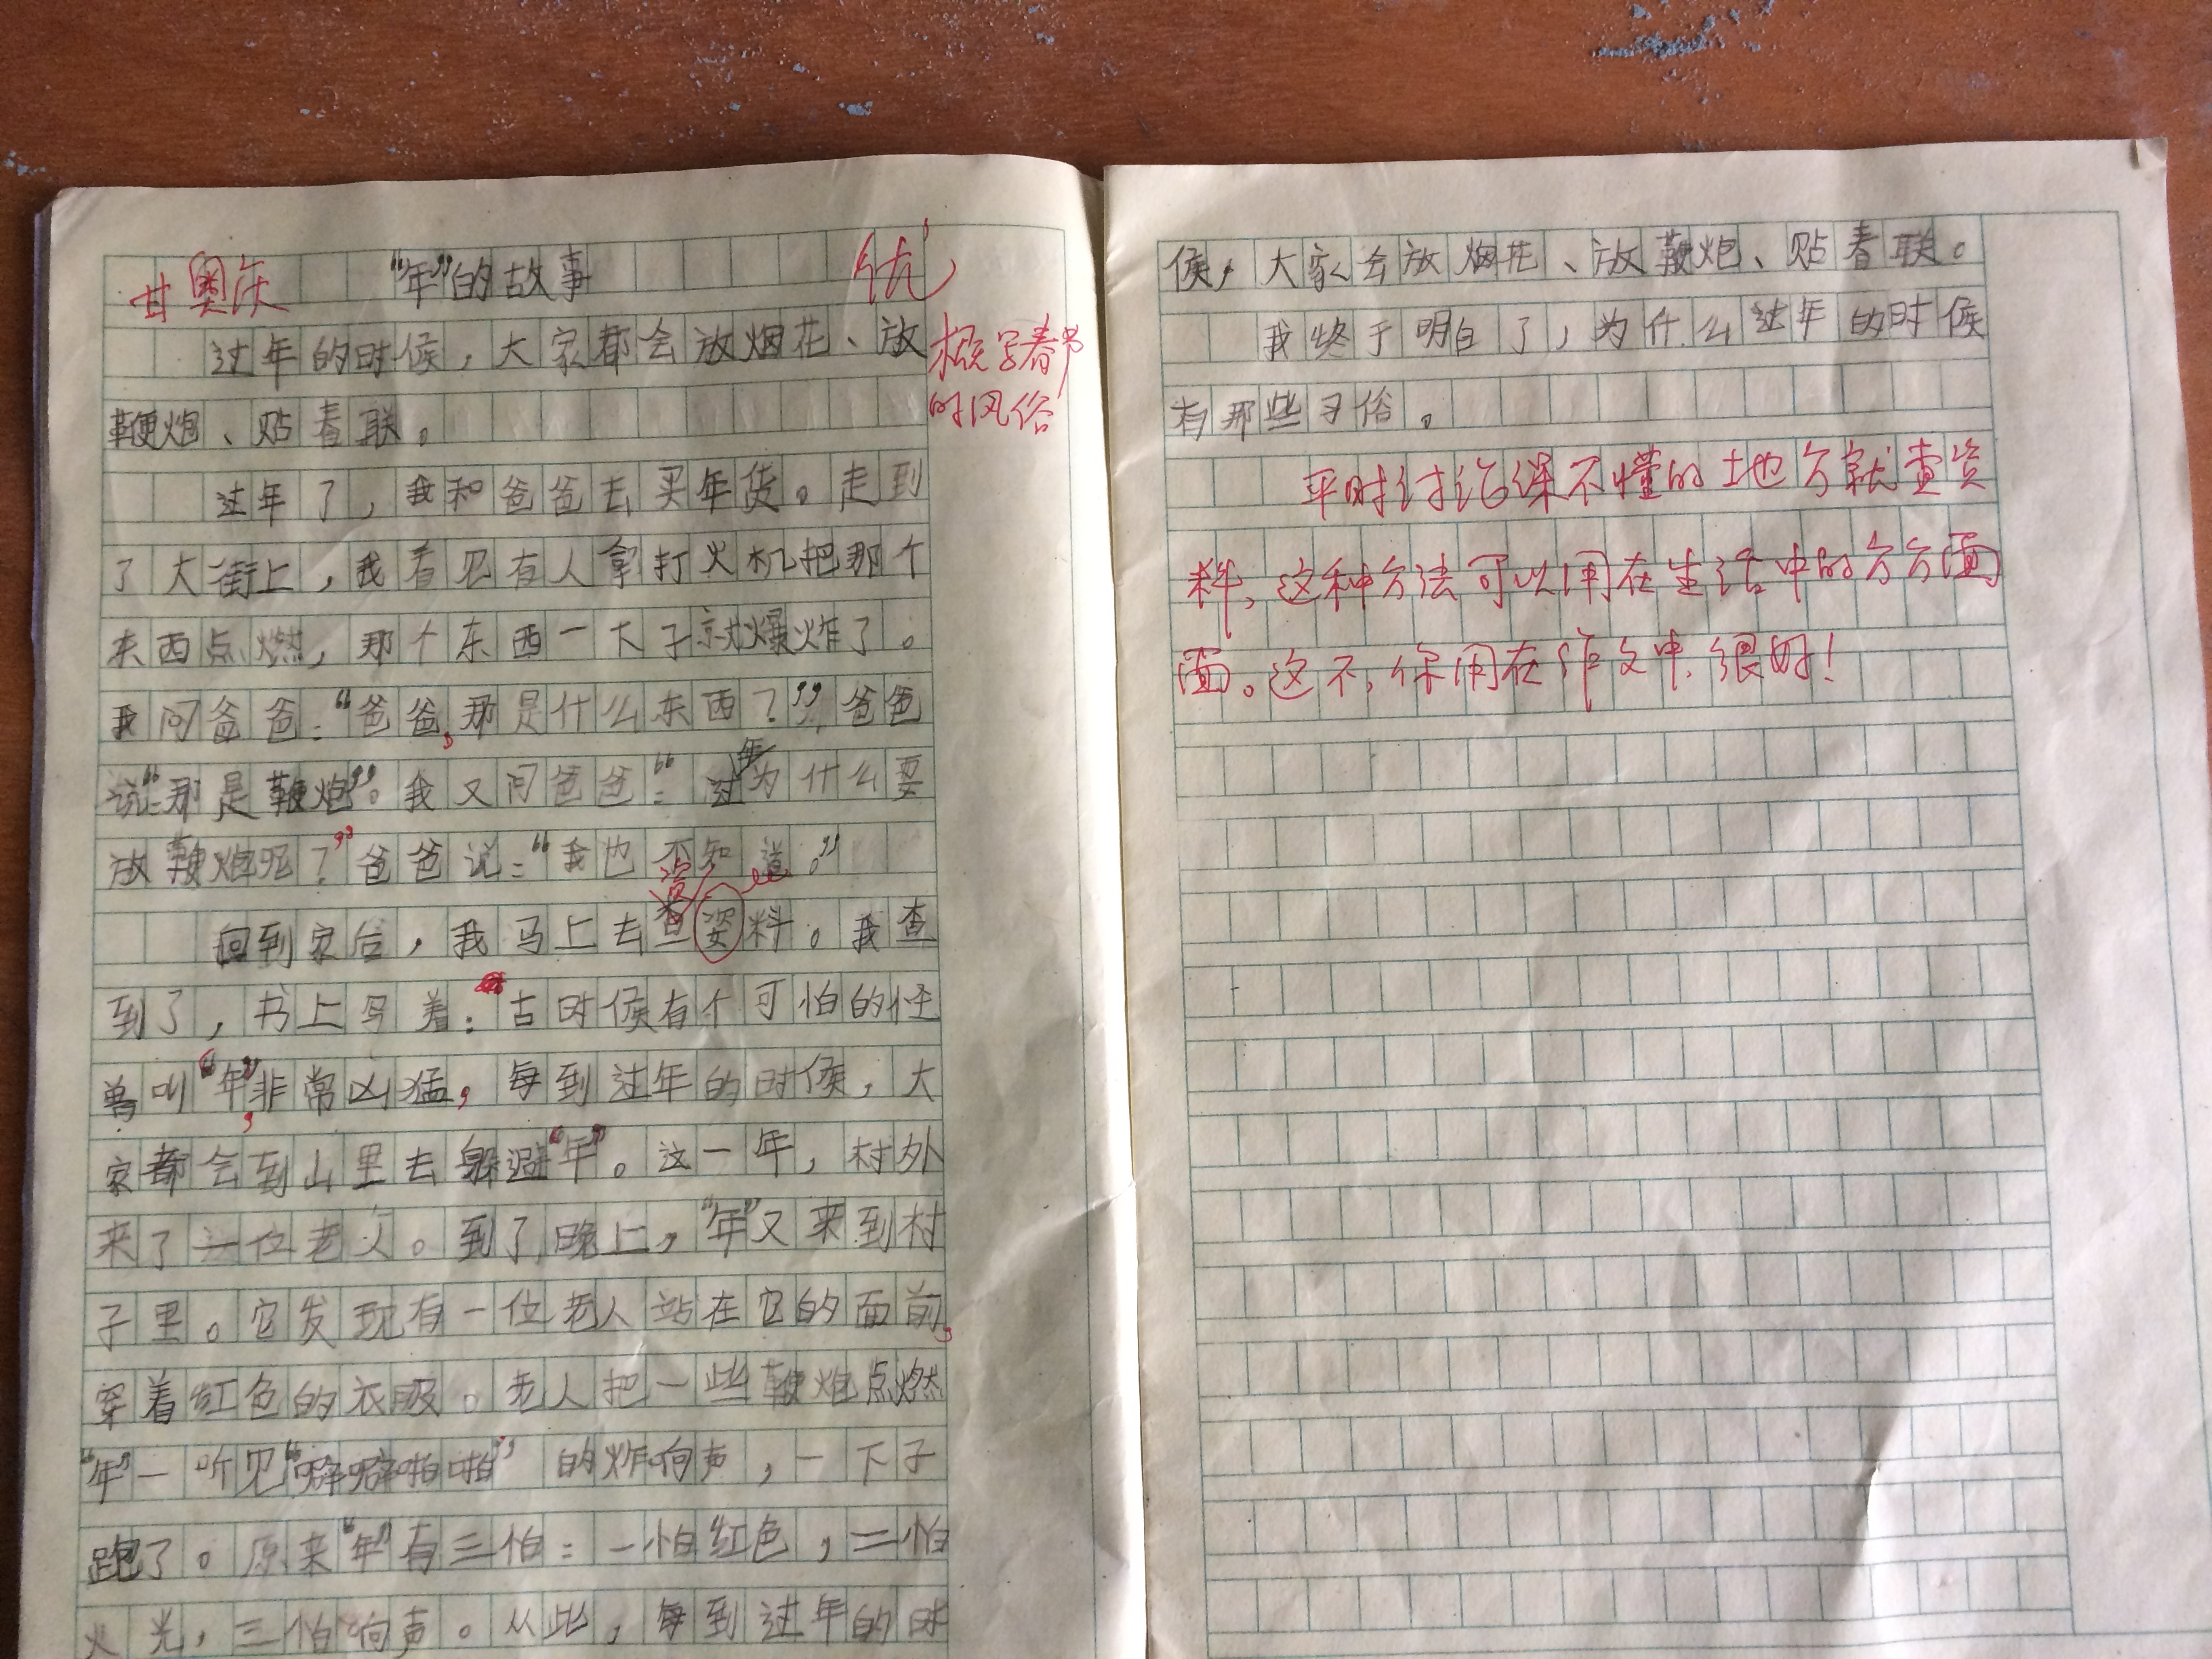 甘奥沃 “年”的故事 优
过年的时候，大家都会放烟花、放
概写春节
的风俗
鞭炮、贴春联。
过年了，我和爸爸去买年货。走到
了大街上，我看见有人拿打火机把那个
东西点燃，那个东西一大子就爆炸了。
我问爸爸：“爸爸，那是什么东西？”爸爸
说：“那是鞭炮”。我又问爸爸：“过年为什么要
放鞭炮呢？”爸爸说：“我也不知道。”
资
回到家后，我马上去查姿料。我查
到了，书上写着：古时候有个可怕的怪
兽叫“年”，非常凶猛，每到过年的时候，大
家都会到山里去躲避“年”。这一年，村外
来了一位老人。到了晚上，“年”又来到村
子里。它发现有一位老人站在它的面前，
穿着红色的衣服。老人把一些鞭炮点燃
“年”一听见“噼噼啪啪”的炸响声，一下子
跑了。原来“年”有三怕：一怕红色，二怕
火光，三怕响声。从此，每到过年的时
候，大家会放烟花、放鞭炮、贴春联。
我终于明白了，为什么过年的时候
有那些习俗。
平时讨论课不懂的地方就查资
料，这种方法可以用在生活中的方方面
面。这不，你用在作文中，很好！